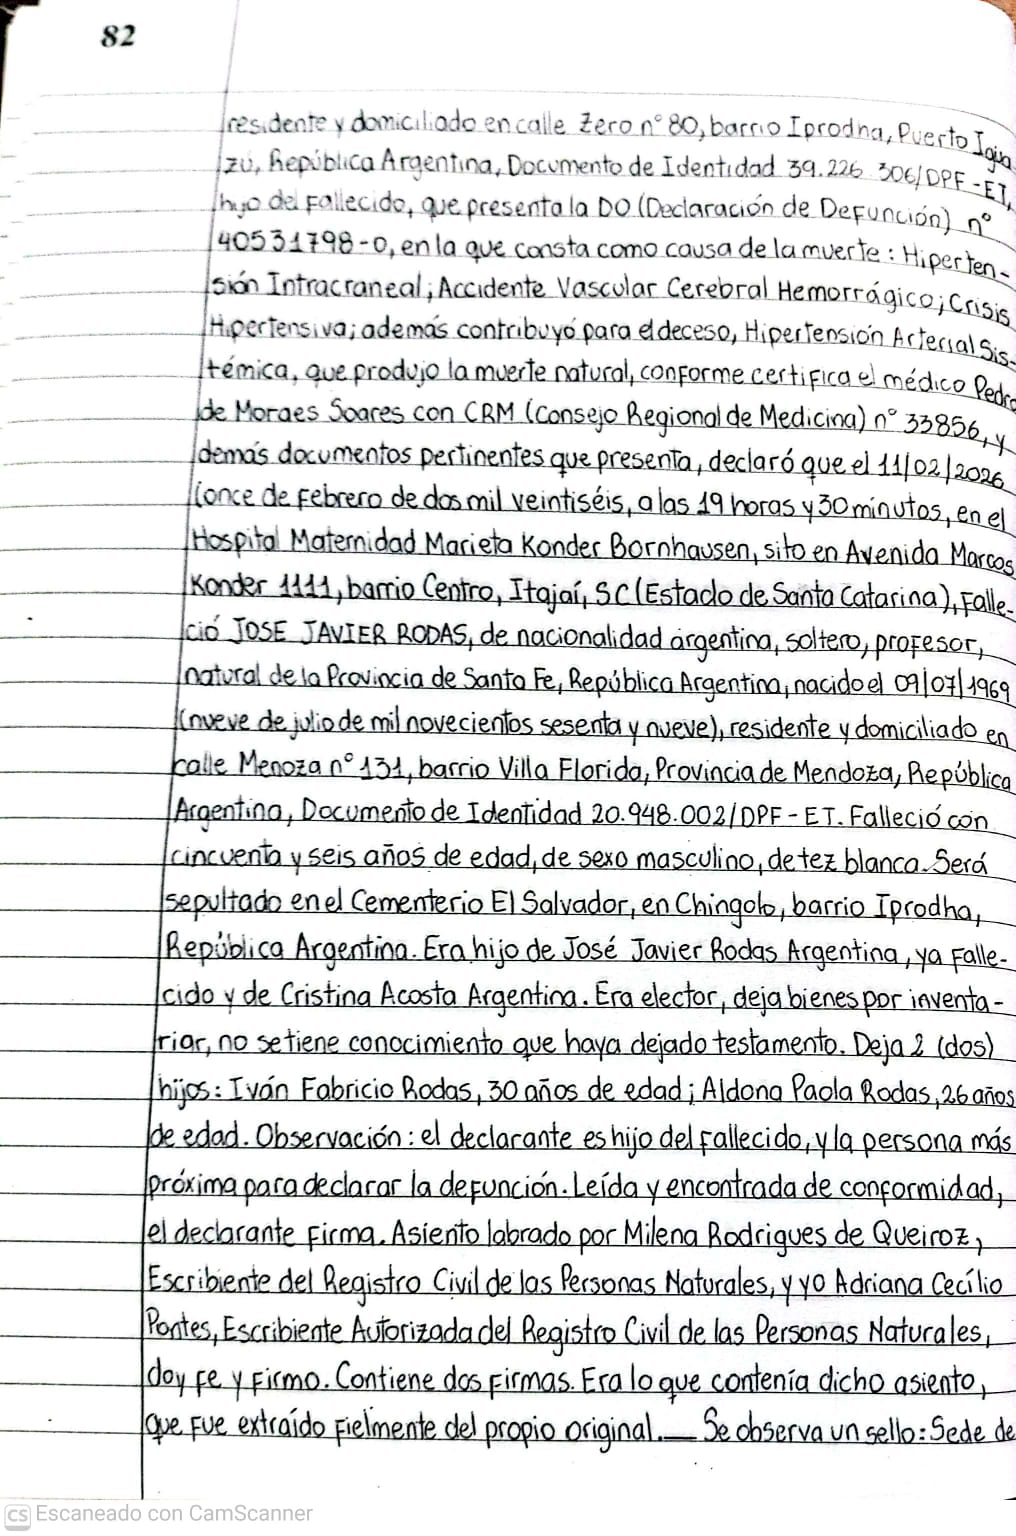 82
residente y domiciliado en calle Zero n° 80, barrio Iprodha, Puerto Igua
zú, República Argentina, Documento de Identidad 39.226.306/DPF-ET,
hijo del fallecido, que presenta la DO (Declaración de Defunción) n°
40531798-0, en la que consta como causa de la muerte: Hiperten-
sión Intracraneal; Accidente Vascular Cerebral Hemorrágico; Crisis
Hipertensiva; además contribuyó para el deceso, Hipertensión Arterial Sis-
témica, que produjo la muerte natural, conforme certifica el médico Pedro
de Moraes Soares con CRM (Consejo Regional de Medicina) n° 33856, y
demás documentos pertinentes que presenta, declaró que el 11/02/2026
(once de febrero de dos mil veintiséis, a las 19 horas y 30 minutos, en el
Hospital Maternidad Marieta Konder Bornhausen, sito en Avenida Marcos
Konder 1111, barrio Centro, Itajaí, SC (Estado de Santa Catarina), Falle-
ció JOSE JAVIER RODAS, de nacionalidad argentina, soltero, profesor,
natural de la Provincia de Santa Fe, República Argentina, nacido el 09/07/1969
(nueve de julio de mil novecientos sesenta y nueve), residente y domiciliado en
calle Menoza n° 131, barrio Villa Florida, Provincia de Mendoza, República
Argentina, Documento de Identidad 20.948.002/DPF-ET. Falleció con
cincuenta y seis años de edad, de sexo masculino, de tez blanca. Será
sepultado en el Cementerio El Salvador, en Chingolo, barrio Iprodha,
República Argentina. Era hijo de José Javier Rodas Argentina, ya Falle-
cido y de Cristina Acosta Argentina. Era elector, deja bienes por inventa-
riar, no se tiene conocimiento que haya dejado testamento. Deja 2 (dos)
hijos: Iván Fabricio Rodas, 30 años de edad; Aldana Paola Rodas, 26 años
de edad. Observación: el declarante es hijo del fallecido, y la persona más
próxima para declarar la defunción. Leída y encontrada de conformidad,
el declarante Firma. Asiento labrado por Milena Rodrigues de Queiroz,
Escribiente del Registro Civil de las Personas Naturales, y yo Adriana Cecílio
Pontes, Escribiente Autorizada del Registro Civil de las Personas Naturales,
doy fe y Firmo. Contiene dos Firmas. Era lo que contenía dicho asiento,
que fue extraído fielmente del propio original.___ Se observa un sello: Sede de
CS Escaneado con CamScanner